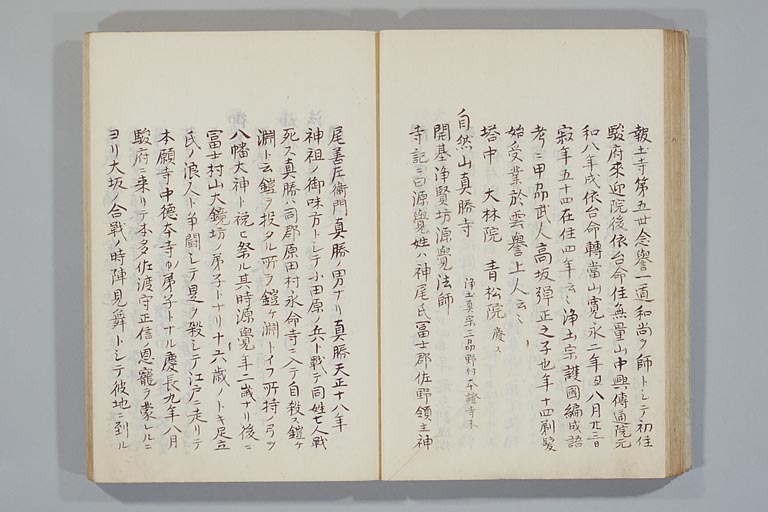 報土寺第五世念誉一道和尚ヲ師トシテ初住
駿府来迎院後依台命住無量山中興傳通院元
和八年戌依台命轉當山寛永二年丑八月廿三日
寂年五十四在住四年云〻浄土宗護國編成語
考ニ甲刕武人高坂弾正之子也年十四剃髪
始受業於雲誉上人云〻
塔中 大林院 青松院 廃ス
自然山真勝寺 浄土真宗三刕野村本證寺末
開基浄賢坊源覺法師
寺記ニ曰源覺姓ハ神尾氏冨士郡佐野領主神
尾善左衛門真勝ノ男ナリ真勝天正十八年
神祖ノ御味方トシテ小田原ノ兵ト戦テ同姓七人戦
死ス真勝ハ同郡原田村永命寺ニ入テ自殺ス鎧ヶ
淵ト云鎧ヲ投タル所ヲ鎧ヶ淵トイフ所持ノ弓ヲ
八幡大神ト祝ヒ祭ル其時源覺年二歳ナリ後ニ
冨士村山大鏡坊ノ弟子トナリ十六歳ノトキ足立
氏ノ浪人ト争闘シテ是ヲ殺シテ江戸ニ走リテ
本願寺中徳本寺ノ弟子トナル慶長九年八月
駿府ニ来リテ本多佐渡守正信ノ恩寵ヲ蒙レルニ
ヨリ大坂ノ合戦ノ時陣見舞トシテ彼地ニ到ル